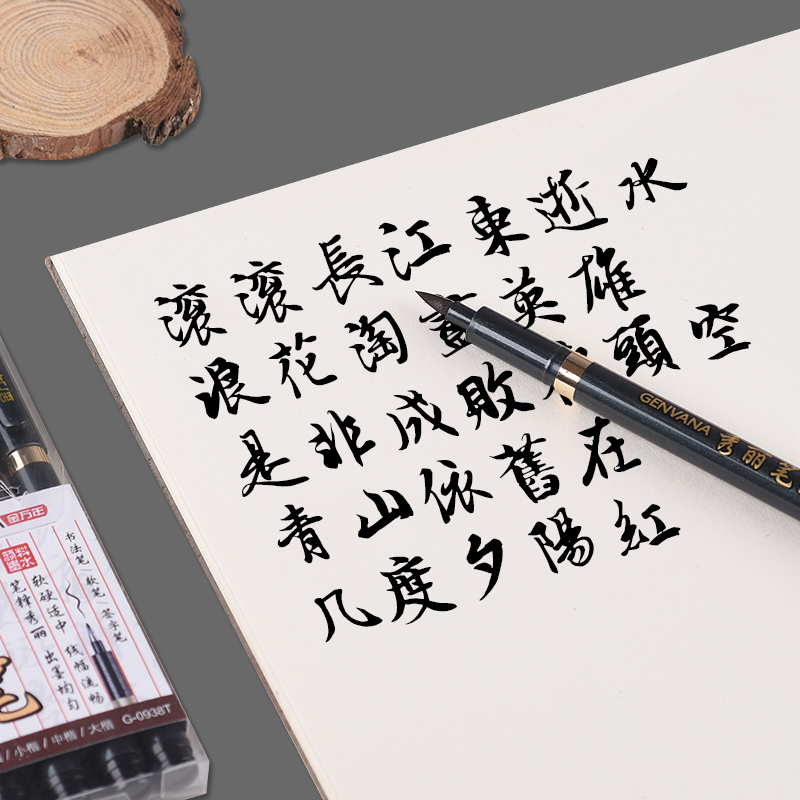 滾滾長江東逝水
浪花淘盡英雄
是非成敗頭空
青山依舊在
几度夕陽紅
GENVANA 秀丽笔
金万年
颜料墨水
书法笔/软笔/签字笔
软硬适中 线幅流畅
笔锋秀丽 出墨均匀
笔
/小楷/中楷/大楷 G-0938T